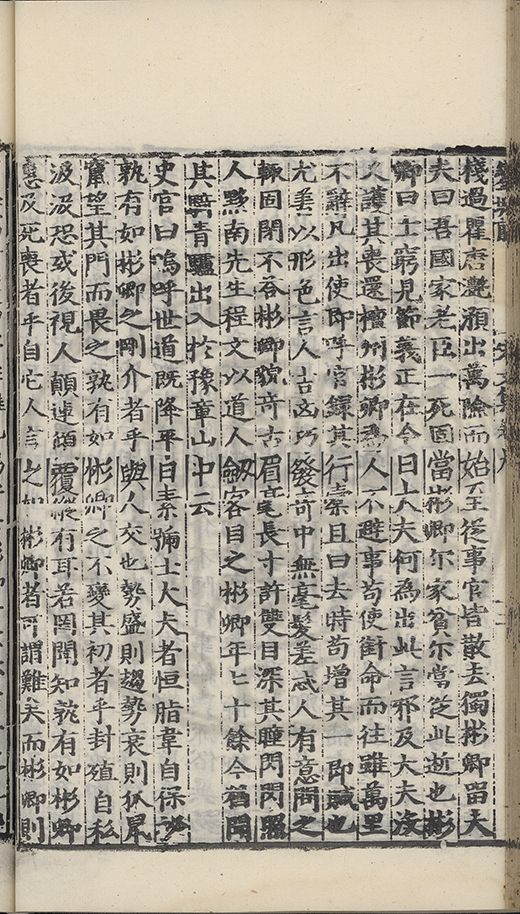 棧過瞿唐灔澦出萬險而始至從事官皆散去獨彬卿留大
夫曰吾國家老臣一死固當彬卿尔家貧尔當從此逝也彬
卿曰士窮見節義正在今日大夫何為出此言邪及大夫沒
又護其喪還檀州彬卿為人不避事苟使銜命而往雖萬里
不辭凡出使即呼官録其行槖且曰去時苟增其一即贓也
尤善以形色言人吉凶巧發奇中無毫髮差忒人有意問之
輒固閉不荅彬卿貌奇古眉毫長寸許雙目深其瞳閃閃照
人黟南先生程文以道人劒客目之彬卿年七十餘今猶間
其騎青驢出入於豫章山中云
史官曰嗚呼世道既降平日素號士大夫者恒脂韋自保
孰有如彬卿之剛介者乎與人交也勢盛則趨勢衰則
窺望其門而畏之孰有如彬卿之不變其初者乎封殖自私
汲汲恐或後視人顛連頷覆縱有耳若罔聞知孰有如彬卿
及死喪者乎自它人言之如彬卿者可謂難矣而彬卿則